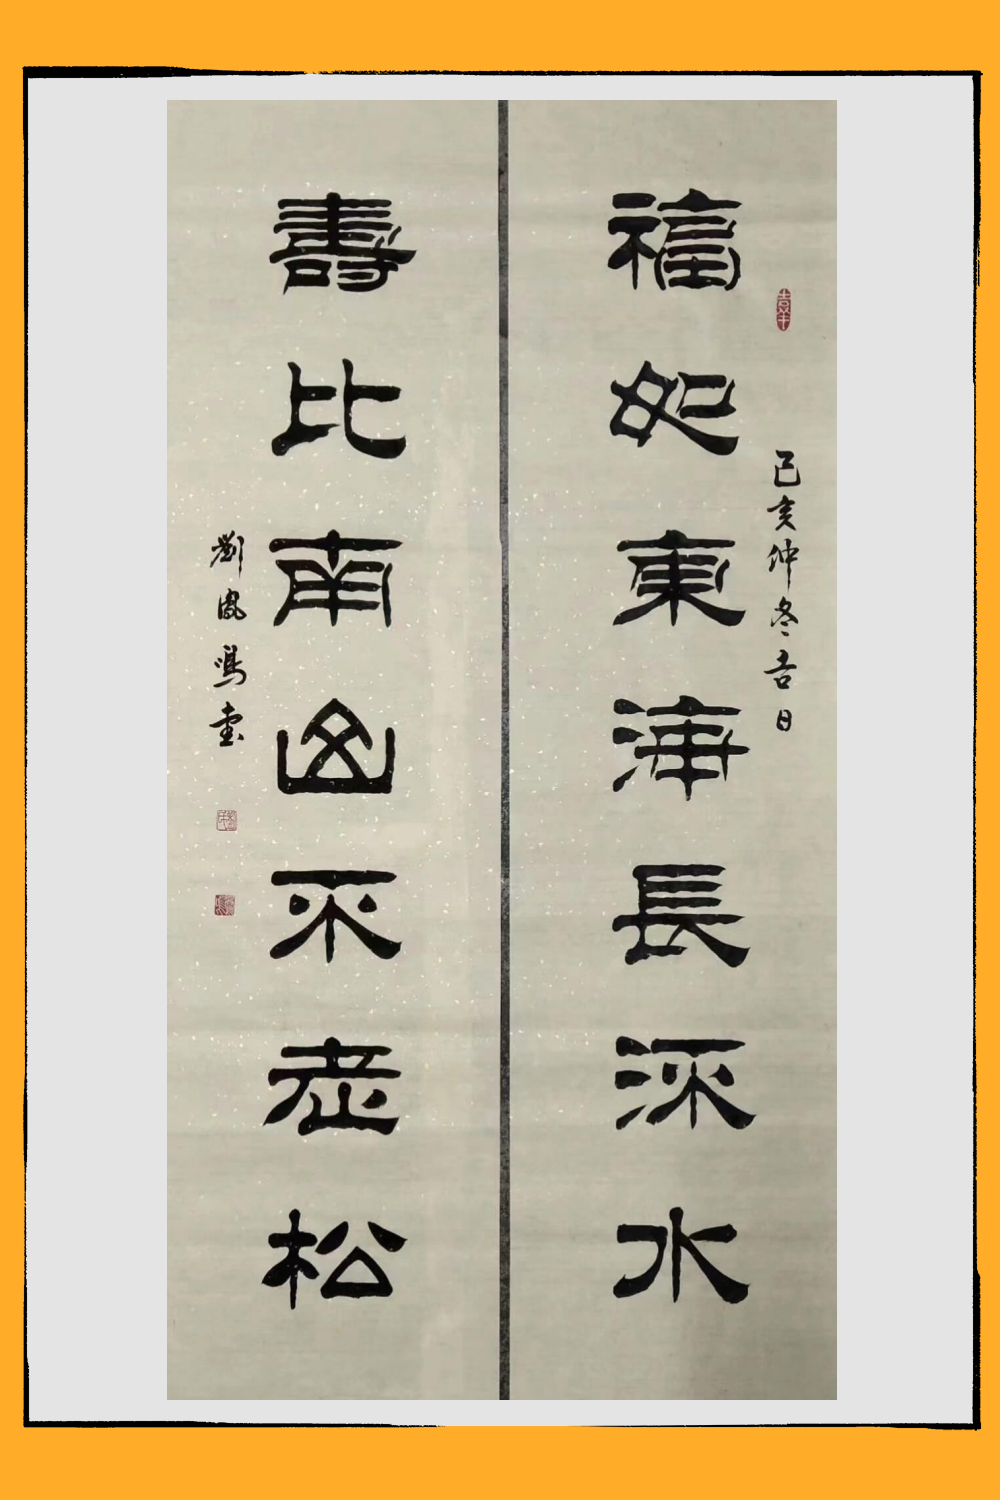 己亥仲冬吉日
福如東海長流水
壽比南山不老松
劉鳳鳴書